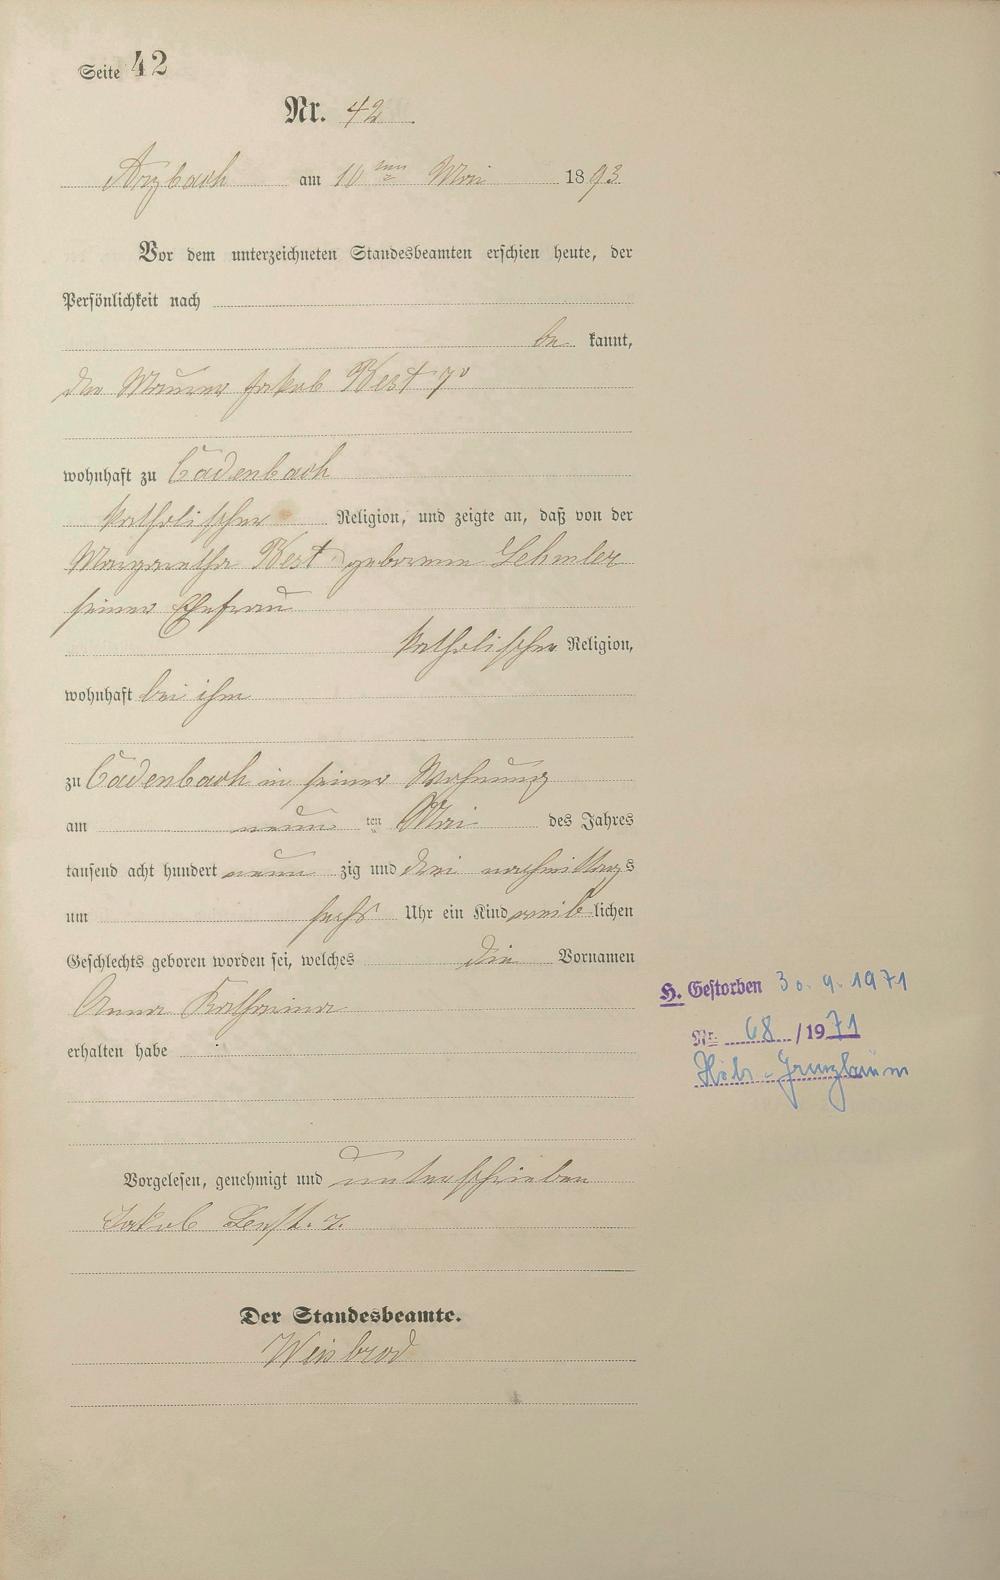 Seite 42
Nr. 42
Arzbach am 10ten Mai 1893.
Vor dem unterzeichneten Standesbeamten erschien heute, der
Persönlichkeit nach
be kannt,
der Maurer Jakob Kest 7r
wohnhaft zu Cadenbach
katholischer Religion, und zeigte an, daß von der
Margaretha Kest geborenen Lehmler
seiner Ehefrau
katholischer Religion,
wohnhaft bei ihm
zu Cadenbach in seiner Wohnung
am neun ten Mai des Jahres
tausend acht hundert neun zig und drei nachmittags
um sechs Uhr ein Kind weiblichen
Geschlechts geboren worden sei, welches die Vornamen
Anna Katharina
erhalten habe
H. Gestorben 30.9.1971
Nr. 68/1971
Höhr-Grenzhausen
Vorgelesen, genehmigt und unterschrieben
Jakob Kest. 7.
Der Standesbeamte.
Weisbrod